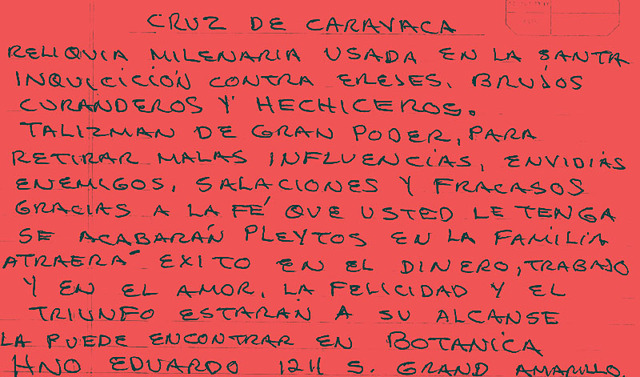 CRUZ DE CARAVACA
RELIQUIA MILENARIA USADA EN LA SANTA
INQUICICIÓN CONTRA EREJES. BRUJOS
CURANDEROS Y HECHICEROS.
TALIZMAN DE GRAN PODER, PARA
RETIRAR MALAS INFLUENCIAS, ENVIDIAS
ENEMIGOS, SALACIONES Y FRACASOS
GRACIAS A LA FÉ QUE USTED LE TENGA
SE ACABARÁN PLEYTOS EN LA FAMILIA
ATRAERÁ EXITO EN EL DINERO, TRABAJO
Y EN EL AMOR. LA FELICIDAD Y EL
TRIUNFO ESTARÁN A SU ALCANSE
LA PUEDE ENCONTRAR EN BOTANICA
HNO EDUARDO 1211 S. GRAND AMARILLO.